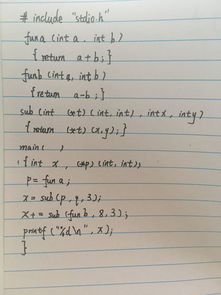 # include "stdio.h"
funa (int a, int b)
{return a+b;}
funb (int a, int b)
{return a-b;}
sub (int (*t) (int, int), int x, int y)
{return (*t) (x,y);}
main( )
{int x, (*p) (int, int);
p=funa;
x=sub(p,9,3);
x+=sub(funb,8,3);
printf("%d\n",x);
}